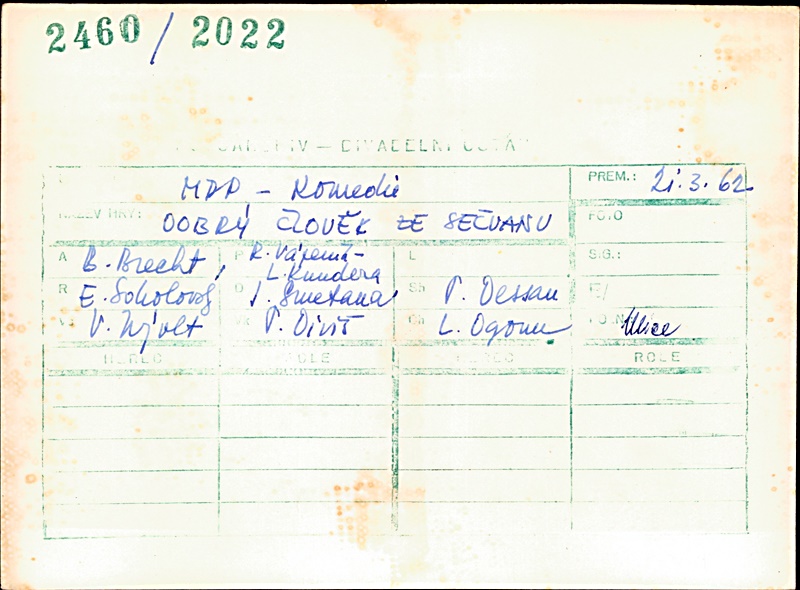 2460 / 2022
DIVADELNÍ ÚSTAV
MDP - Komedie PREM.: 21.3.62
NÁZEV HRY: DOBRÝ ČLOVĚK ZE SEČUANU FOTO
A B. Brecht, P R. Vápeník- L SIG.:
L. Kundera
R E. Sokolovský D J. Smetana Sh P. Dessau
V. Nývlt P. Diviš Ch L. Ogoun Ulice
HEREC ROLE HEREC ROLE